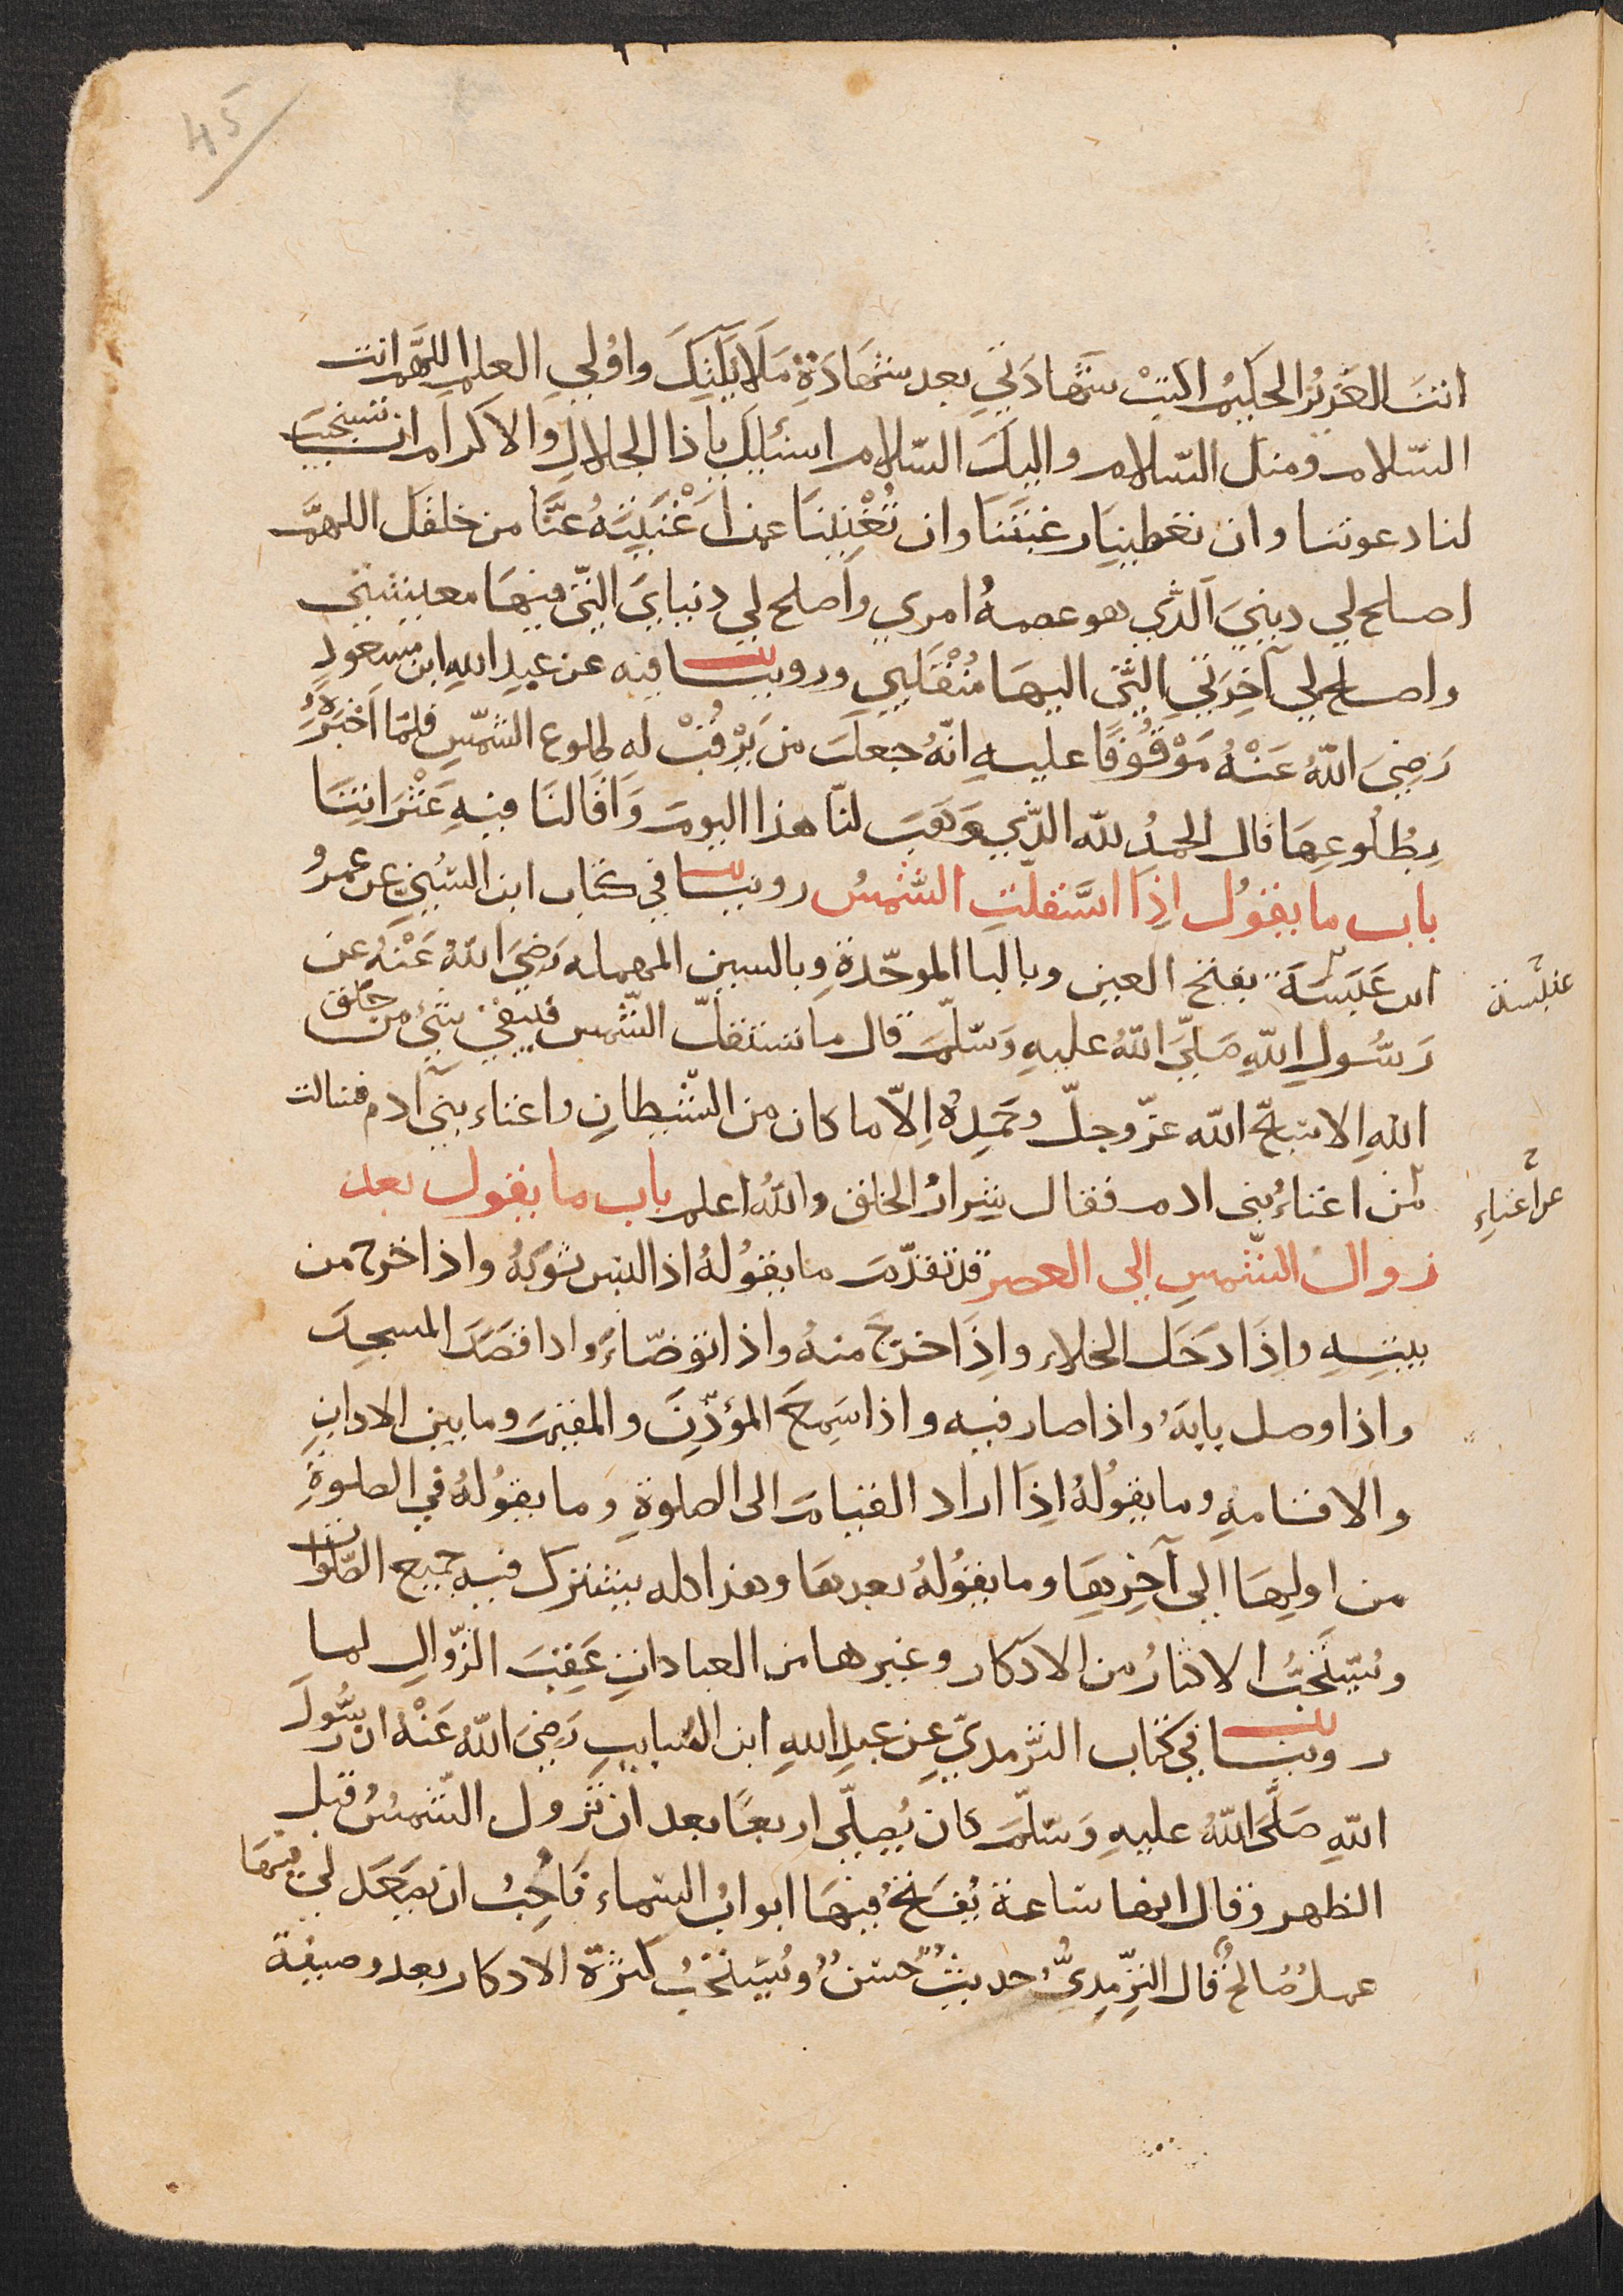 45
انتَ العَزيزُ الحكيمُ اكتبْ شهَادَتي بعد شهَادَةِ مَلَائكتِكَ واُولي العلم اللهمّ انت
السّلام ومنك السّلام واليكَ السّلام اسئلك يا ذا الجلالِ والاكرام ان تستجيبَ
لنا دعوتنا وان تعطينَا رغبتَنَا وان تُغْنِيَنَا عمن اَغْنَيْتَهُ عنَّا من خلقك اللهمّ
اصلح لي دينيَ الّذي هو عصمهُ امري وَاصلح لي دنيايَ الّتي فيهَا معيشتي
واصلح لي آخِرَتي الّتي اليهَا مُنْقَلَبي وروينا فيه عن عبدِ اللهِ ابن مسعودٍ
رَضِيَ اللّهُ عَنْهُ مَوْقُوفًا عليهِ انّهُ جعلَ من يَرْقُبْ له طلوع الشّمسِ فلمّا اَخبَرَهُ
بِطُلُوعِهَا قال الحمدُ للّه الّذي وَهَبَ لنَا هذا اليومَ وَاقَالنَا فيهِ عَثْرَاتِنَا
باب ما يقولُ اِذَا اسْتقلّتِ الشّمسُ روينا في كتاب ابن السُّنِّي عن عمرو
ابن عَبَسَةَ بفتح العين وبالبا الموحّدةِ وبالسين المهمله رَضِيَ اللّهُ عَنْهُ عن
عنبسة
رَسُولِ اللّهِ صَلّيَ اللّهُ عليهِ وَسَلّمَ قال ما تستقلّ الشّمس فيبقىٰ شئ من خلق
اللهِ الا سَبّحَ اللّه عزّ وجلّ وحَمِدَهُ اِلّا ما كان من الشّيطانِ واغناء بني آدم فسالت
من اغناءُ بنى ادم فقال شِرارُ الخلق واللّهُ اعلم باب ما يقول بعد
عن اغناءِ
زوال الشّمسِ الى العصر قد تقدّمَ ما يقُولُهُ اذا لبس ثوبَهُ واذا خرج من
بيتِهِ واِذَا دَخَلَ الخلاء واِذَا خرَجَ منهُ واذا توضّاءَ واذا قصَدَ المسجدَ
واذا وصل بابَهُ واذا صار فيه واذا سَمِعَ المؤذّنَ والمقيمَ وما بين الاذانِ
والاقامهِ وما يقُولُهُ اِذَا اراد القيام الى الصلوةِ وما يقُولُهُ في الصلوةِ
من اولِهَا الى آخِرِهَا وما يقُولُهُ بعدهَا وهذا كله يشترك فيه جميع الصّلوات
ويُستَحَبُّ الاكثارُ من الاذكار وغيرها من العباداتِ عَقِبَ الزّوالِ لما
روينا في كتاب التّرمديّ عن عبدِ اللهِ ابن السّايبِ رَضِيَ اللّهُ عَنْهُ ان رَسُولَ
اللّهِ صَلَّى اللّهُ عليهِ وَسَلّمَ كان يُصلّي اربعًا بعد ان تزول الشّمسُ قبل
الظهر وقال انها ساعة يُفتَحُ فيهَا ابوابُ السّماء فَاُحِبُّ ان يصعَدَ لي فيهَا
عملٌ صالحٌ قال التِّرمِدِيُّ حديثٌ حسَنٌ ويُستَحَبُّ كثرَة الاذكار بعد وضيفة